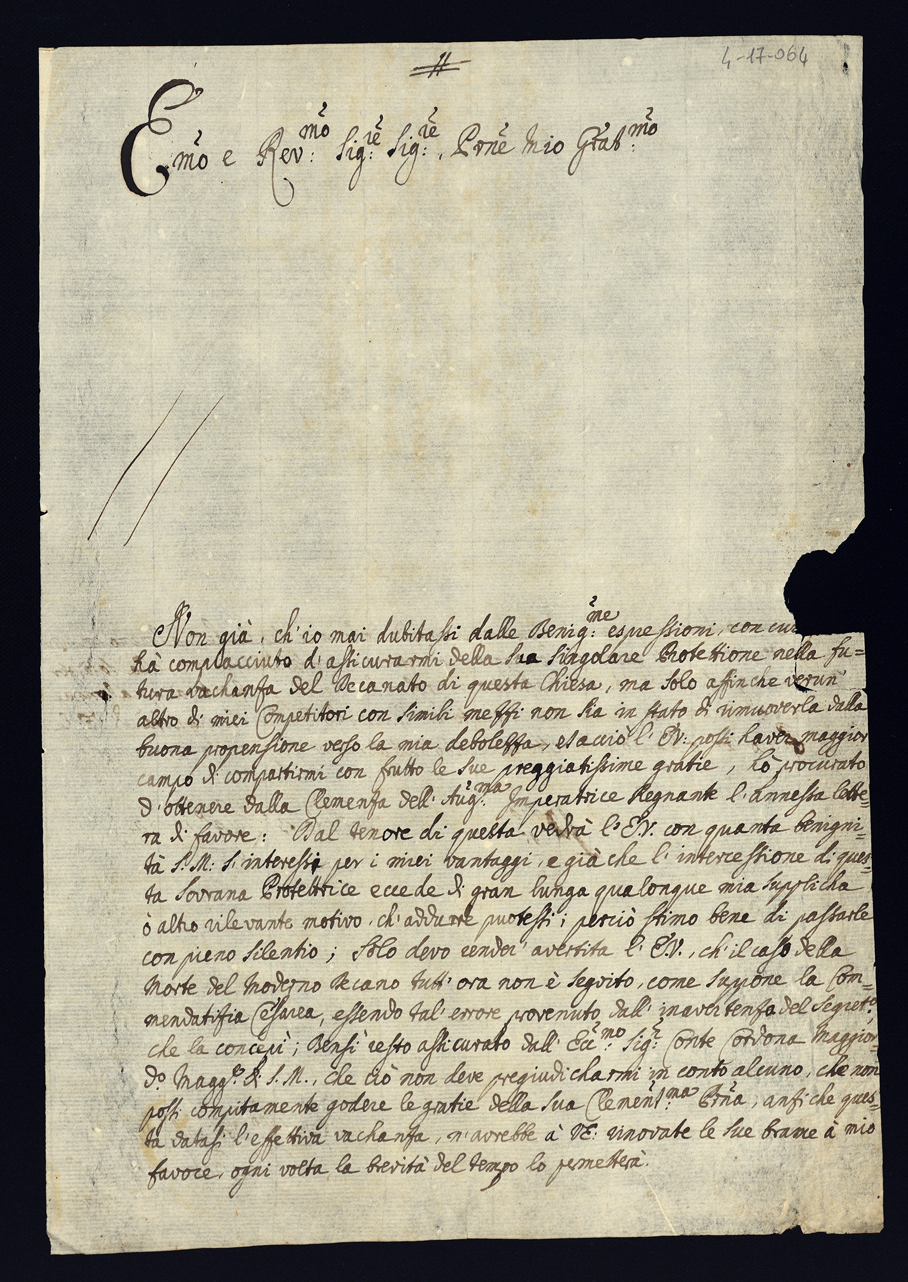 4-17-064
Em̃o e Rev:mo Sig:re Sig:re, Prñe Mio Grãt:mo
Non già, ch'io mai dubitassi dalle Benig:me espressioni, con cui
hà compiacciuto d'assicurarmi della Sua Singolare Protettione nella fu=
tura vachanza del Decanato di questa Chiesa, ma Solo affinche verun
altro di miei Competitori con Simili mezzi non Sia in stato di rimuoverla dalla
buona propensione verso la mia debolezza, e sacciò l'E.V: possi haver maggior
campo di compartirmi con frutto le Sue preggiatissime gratie, hò procurato
d'ottenere dalla Clemenza dell'Aug:ma Imperatrice Regnante l'Annessa lette=
ra di favore: Dal tenore di questa vedrà l'E.V. con quanta benigni=
tà S.M. S'interessi per i miei vantaggi, e già che l'intercessione di ques=
ta Sovrana Protettrice eccede di gran lunga qualonque mia Supplicha
ò altro rilevante motivo, ch'addurre puotessi; perciò stimo bene di passarle
con pieno Silentio; Solo devo render avertita l'E.V., ch'il caso della
Morte del Moderno Decano tutt'ora non è Seguito, come Suppone la Com=
mendatizia Cesarea, essendo tal'errore provenuto dall'inavertenza del Segret:o
che la concepì; Bensì resto assicurato dall'Ecc:mo Sig:r Conte Cordona Maggior=
do Magg:re di S.M., che ciò non deve pregiudicharmi in conto alcuno, che non
possi compitamente godere le gratie della Sua Clement:ma Prña, anzi che ques=
ta datasi l'effettiva vachanza, n'avrebbe à VE: rinovate le Sue brame à mio
favore, ogni volta la brevità del tempo lo permetterà.